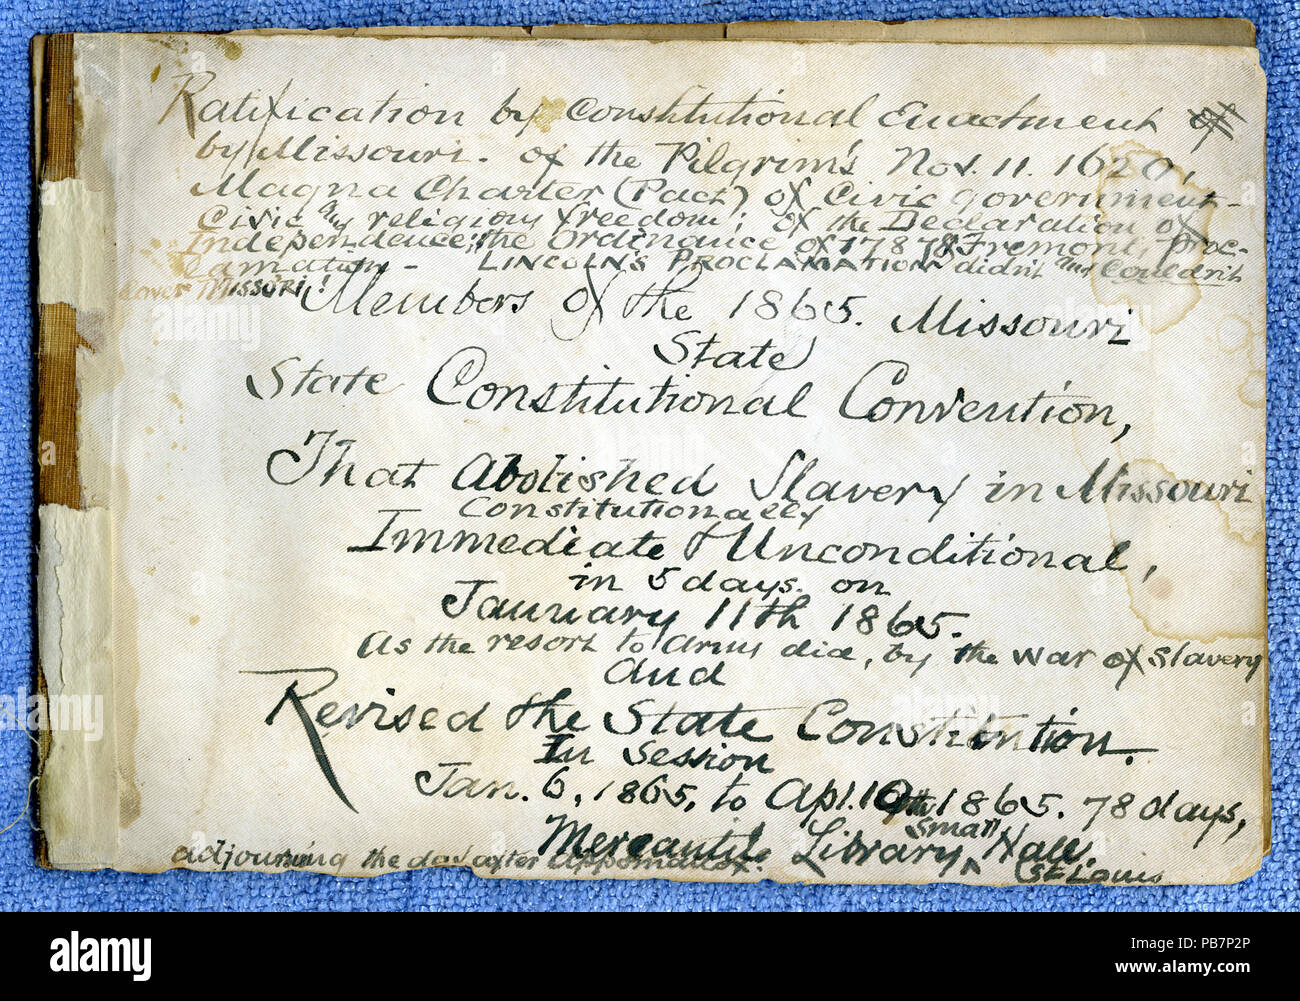 Ratification by Constitutional Enactment of
by Missouri. of the Pilgrim's Nov. 11. 1620,
Magna Charter (Pact) of Civic government-
Civic and religious freedom; of the Declaration of
Independence; the Ordinance of 1787 & Fremont, Proc-
lamation - LINCOLN'S PROCLAMATION didn't and Couldn't
cover Missouri!
Members of the 1865. Missouri
State
State Constitutional Convention,
That Abolished Slavery in Missouri
Constitutionally
Immediate & Unconditional,
in 5 days. on
January 11th 1865.
As the resort to Arms did, by the war of Slavery
and
Revised the State Constitution.
In Session
Jan. 6, 1865, to Apl. 10th 1865. 78 days,
Mercantile Library small Hall.
adjourning the day after Appomattox. St Louis
alamy
PB7P2P
www.alamy.com